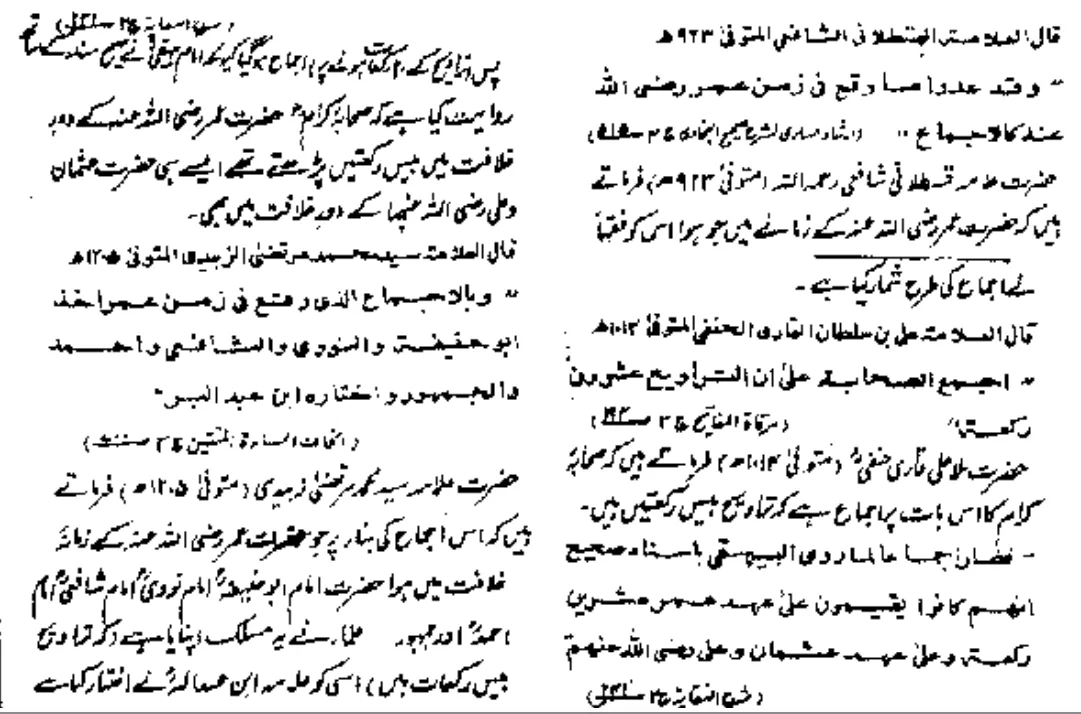 قال العلامتہ القسطلانی الشافعی المتوفیٰ ۹۲۳ھ
" وقد عدوا ما وقع فی زمن عمر رضی اللہ
عنہ کالاجماع " (ارشاد الساری لشرح صحیح البخاری ج ۳
حضرت علامہ قسطلانی شافعی رحمہ اللہ (متوفیٰ ۹۲۳ھ) فرماتے
ہیں کہ حضرت عمر رضی اللہ عنہ کے زمانے میں جو ہوا اس کو فقہاً
نے اجماع کی طرح شمار کیا ہے ۔
قال العلامتہ علی بن سلطان القاری الحنفی المتوفیٰ ۱۰۱۴ھ
" اجمع الصحابۃ علیٰ ان التراویح عشرون
رکعتہ" (مرقاۃ المفاتیح ج ۳
حضرت ملا علی قاری حنفیؒ (متوفیٰ ۱۰۱۴ھ) فرماتے ہیں کہ صحابہ
کرام کا اس بات پر اجماع ہے کہ تراویح بیس رکعتیں ہیں۔
- فصار اجماعا لما روی البیہقی باسناد صحیح
انہم کانوا یقیمون علیٰ عہد عمر عشرین
رکعتہ وعلیٰ عہد عثمان وعلی رضی اللہ عنہم
(شرح النقایۃ ج
(شرح النقایۃ ج
پس تراویح کے ۲۰ رکعات ہونے پر اجماع ہوگیا کیونکہ امام بیہقیؒ نے صحیح سند کے ساتھ
روایت کیا ہے کہ صحابہ کرامؓ حضرت عمر رضی اللہ عنہ کے دور
خلافت میں بیس رکعتیں پڑھتے تھے ایسے ہی حضرت عثمان
وعلی رضی اللہ عنہما کے دور خلافت میں بھی۔
قال العلامتہ سید محمد مرتضیٰ الزبیدی المتوفیٰ ۱۲۰۵ھ
" وبالاجماع الذی وقع فی زمن عمر اخذ
ابو حنیفۃ والنووی والشافعی واحمد
والجمہور واختارہ ابن عبد البر"
(اتحاف السادۃ المتقین ج ۳
حضرت علامہ سید محمد مرتضیٰ زبیدی (متوفیٰ ۱۲۰۵ھ) فرماتے
ہیں کہ اس اجماع کی بناء پر جو حضرات عمر رضی اللہ عنہ کے زمانہ
خلافت میں ہوا حضرت امام ابو حنیفہؒ امام نوویؒ امام شافعیؒ امام
احمدؒ اور جمہور علماء نے یہ مسلک اپنایا ہے (کہ تراویح
بیس رکعات ہیں) اسی کو علامہ ابن عبدالبرؒ نے اختیار کیا ہے